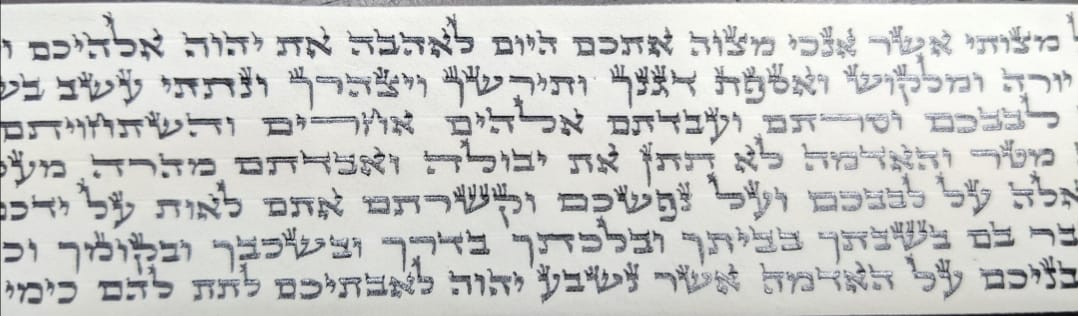 מצותי אשר אנכי מצוה אתכם היום לאהבה את יהוה אלהיכם
יורה ומלקוש ואספת דגנך ותירשך ויצהרך ונתתי עשב
לבבכם וסרתם ועבדתם אלהים אחרים והשתחויתם
מטר והאדמה לא תתן את יבולה ואבדתם מהרה
אלה על לבבכם ועל נפשכם וקשרתם אתם לאות על
בם בשבתך בביתך ובלכתך בדרך ובשכבך ובקומך
בניכם על האדמה אשר נשבע יהוה לאבתיכם לתת להם כימי